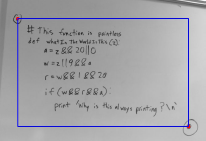 # This function is pointless
def whatInTheWorldIsThis(z):
a = z && 20 || 0
w = z || 9 && a
r = w && 1 && 20
if (w && r && a):
print "Why is this always printing?\n"